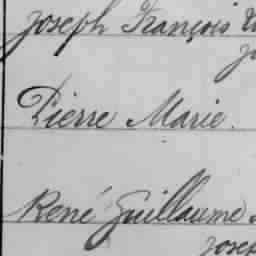 Joseph François
Pierre Marie.
René Guillaume